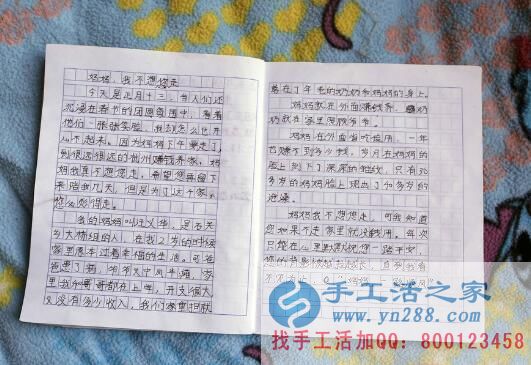 妈妈,我不想您走
今天是正月十三,当人们还
沉浸在春节的团圆氛围中,看着
他们一张张笑脸,我却怎么也开
心不起来。因为妈妈下午要走了,
到很远很远的
州赚钱养家,妈
妈我真不想您走,希望您再留下
来陪我几天,但是为了这个家
您必须得走。
我的妈妈叫
华,是石关
乡大桥组的人,在我2岁的时候
家里原本过着幸福的生活。可爸
爸患了病,
家
里我和哥哥都在上学,开支很大
又没有多少收入,我们家重担就
落在了年老的奶奶和妈妈的身上。
妈妈就在外面赚钱养
奶
奶就在家里照顾爷爷。
妈妈在外面省吃俭用,一年
也赚不到多少钱,岁月在妈妈的
脸上刻下了深深的皱纹,只有30
多岁的妈妈脸上现出了40多岁的
沧桑。
妈妈我不想您走,可我知道
您如果不走家里就没钱用。每次
只能在心里默默祝您一路平安,
您的背影
越走越长,直到我看
不见为止
手工活之家
www.yn288.com
找手工活加QQ:800123458